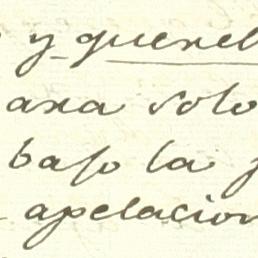 y querel
ara solo
bajo la
apelacion